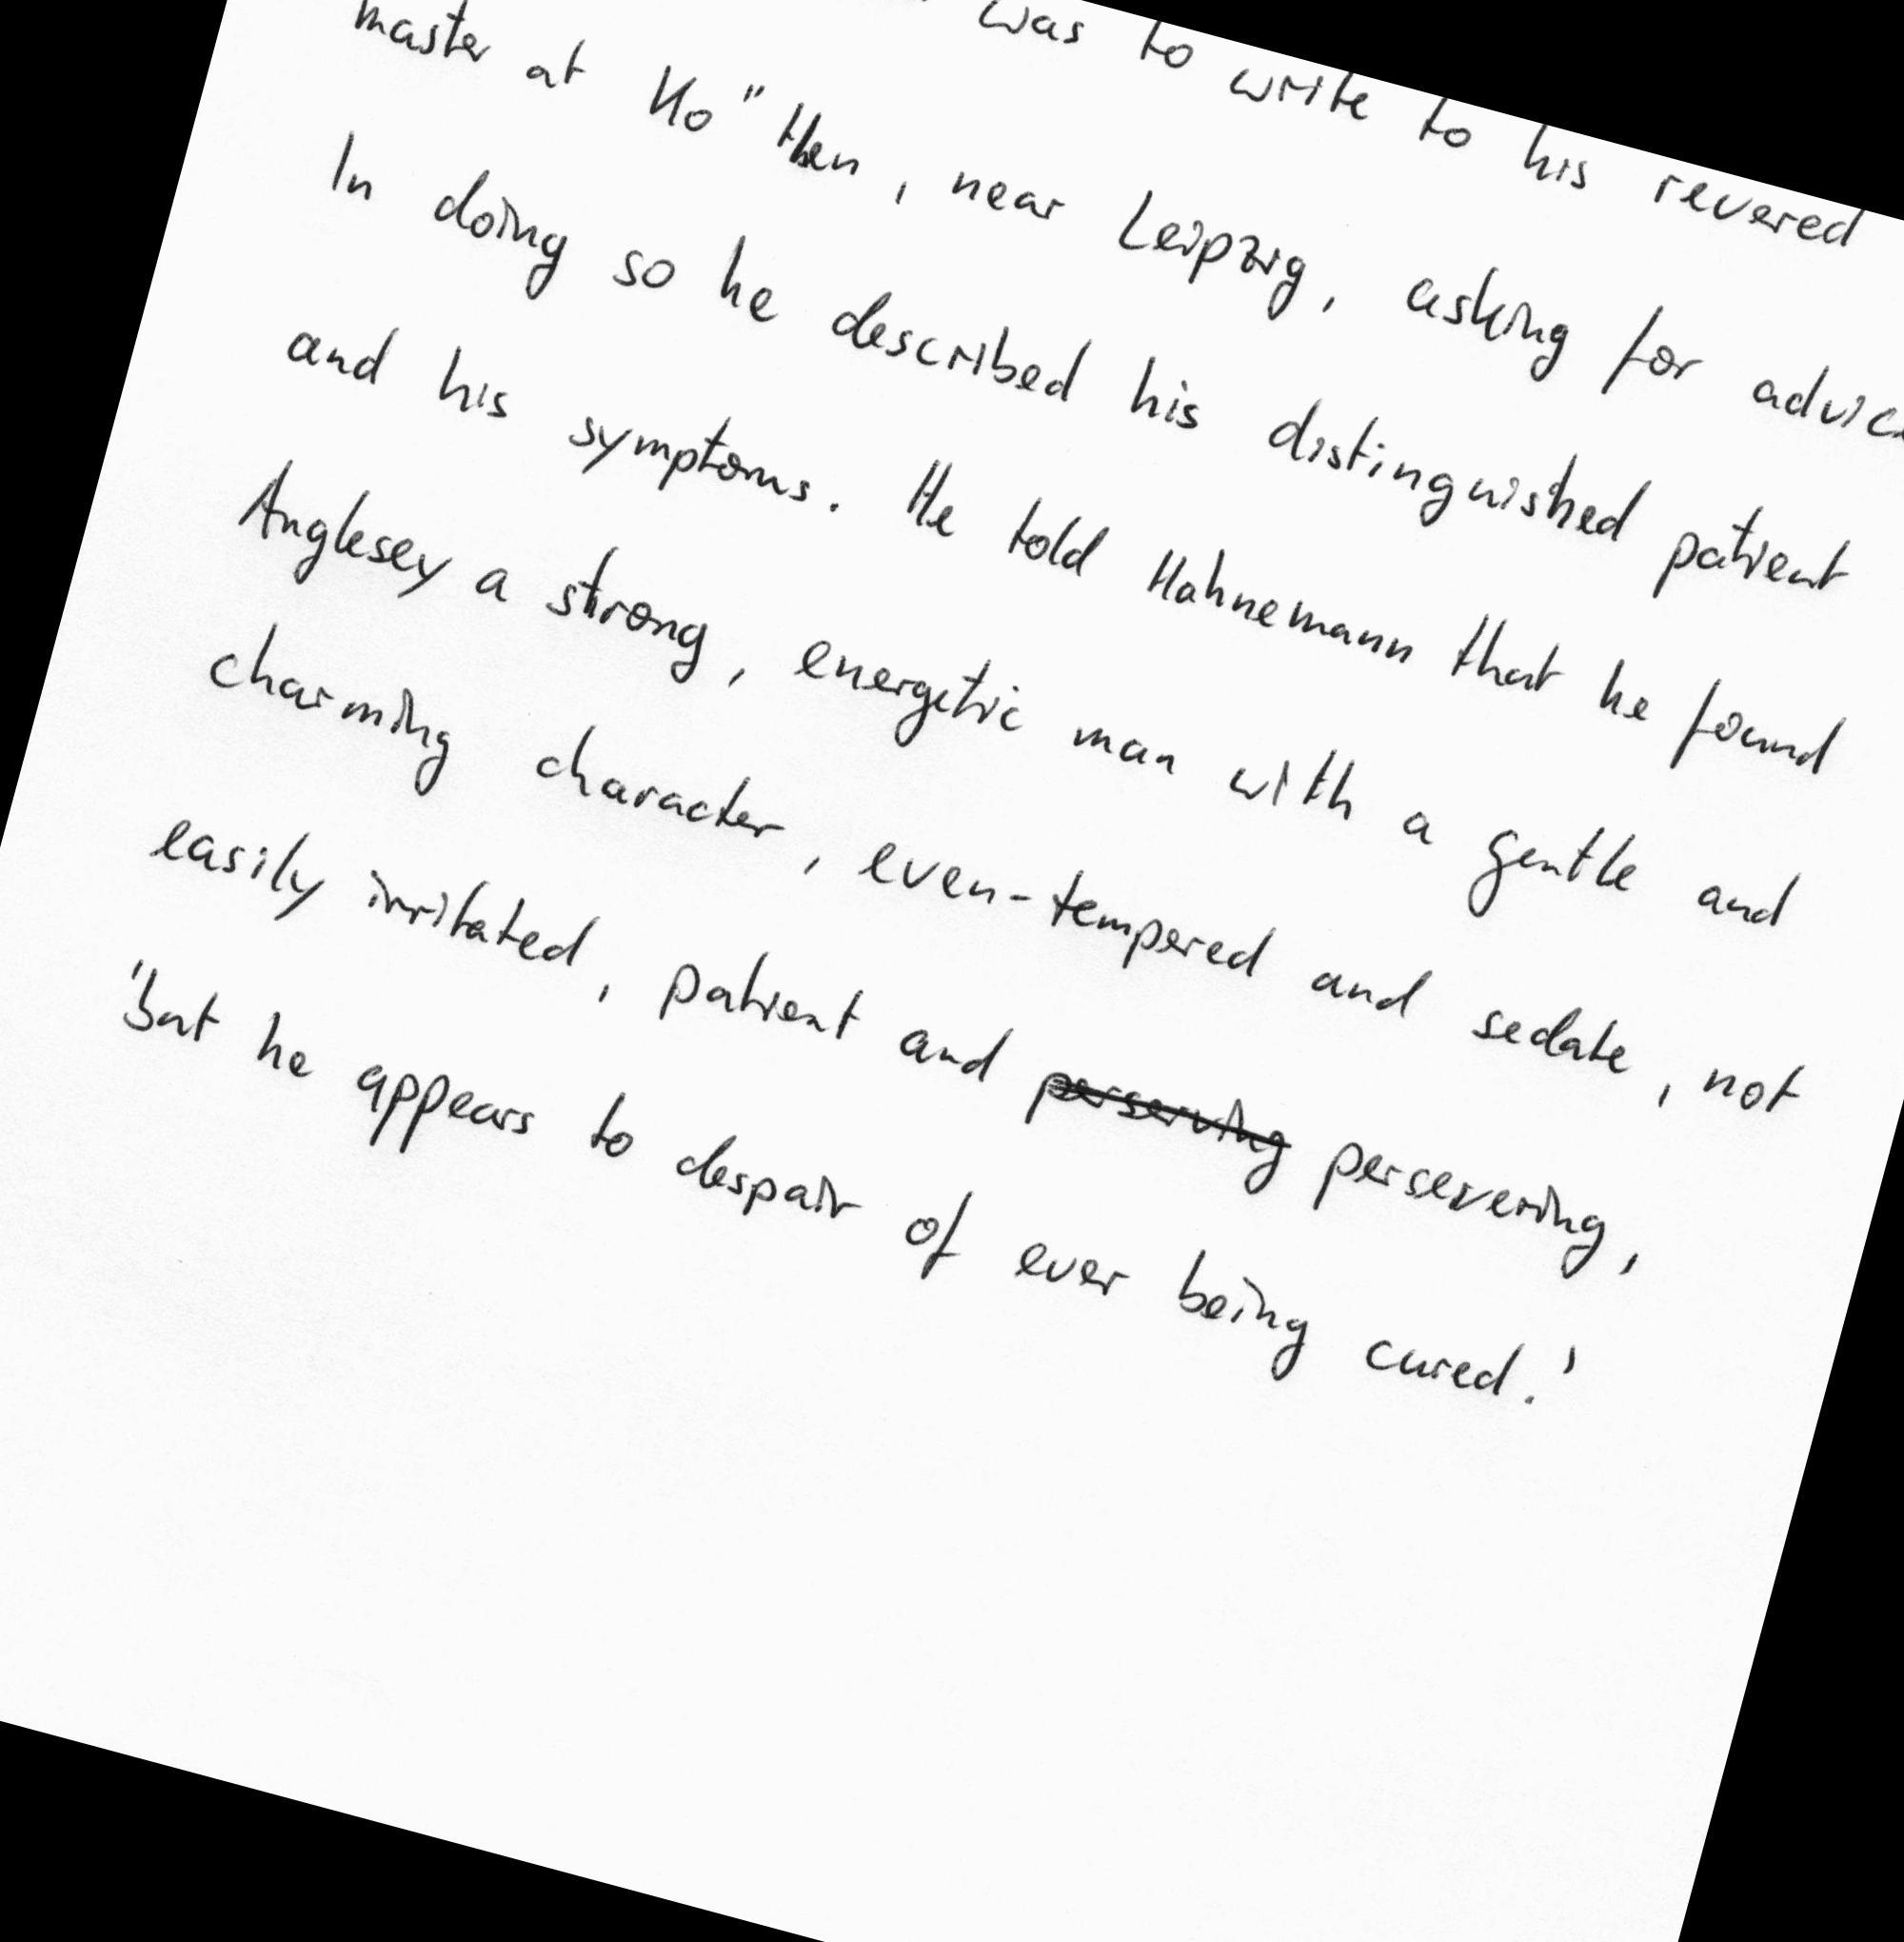 was to write to his revered
master at Ko"then, near Leipzig, asking for
In doing so he described his distinguished patient
and his symptoms. He told Hahnemann that he found
Anglesey a strong, energetic man with a gentle and
charming character, even-tempered and sedate, not
easily irritated, patient and perserving persevering,
'But he appears to despair of ever being cured.'